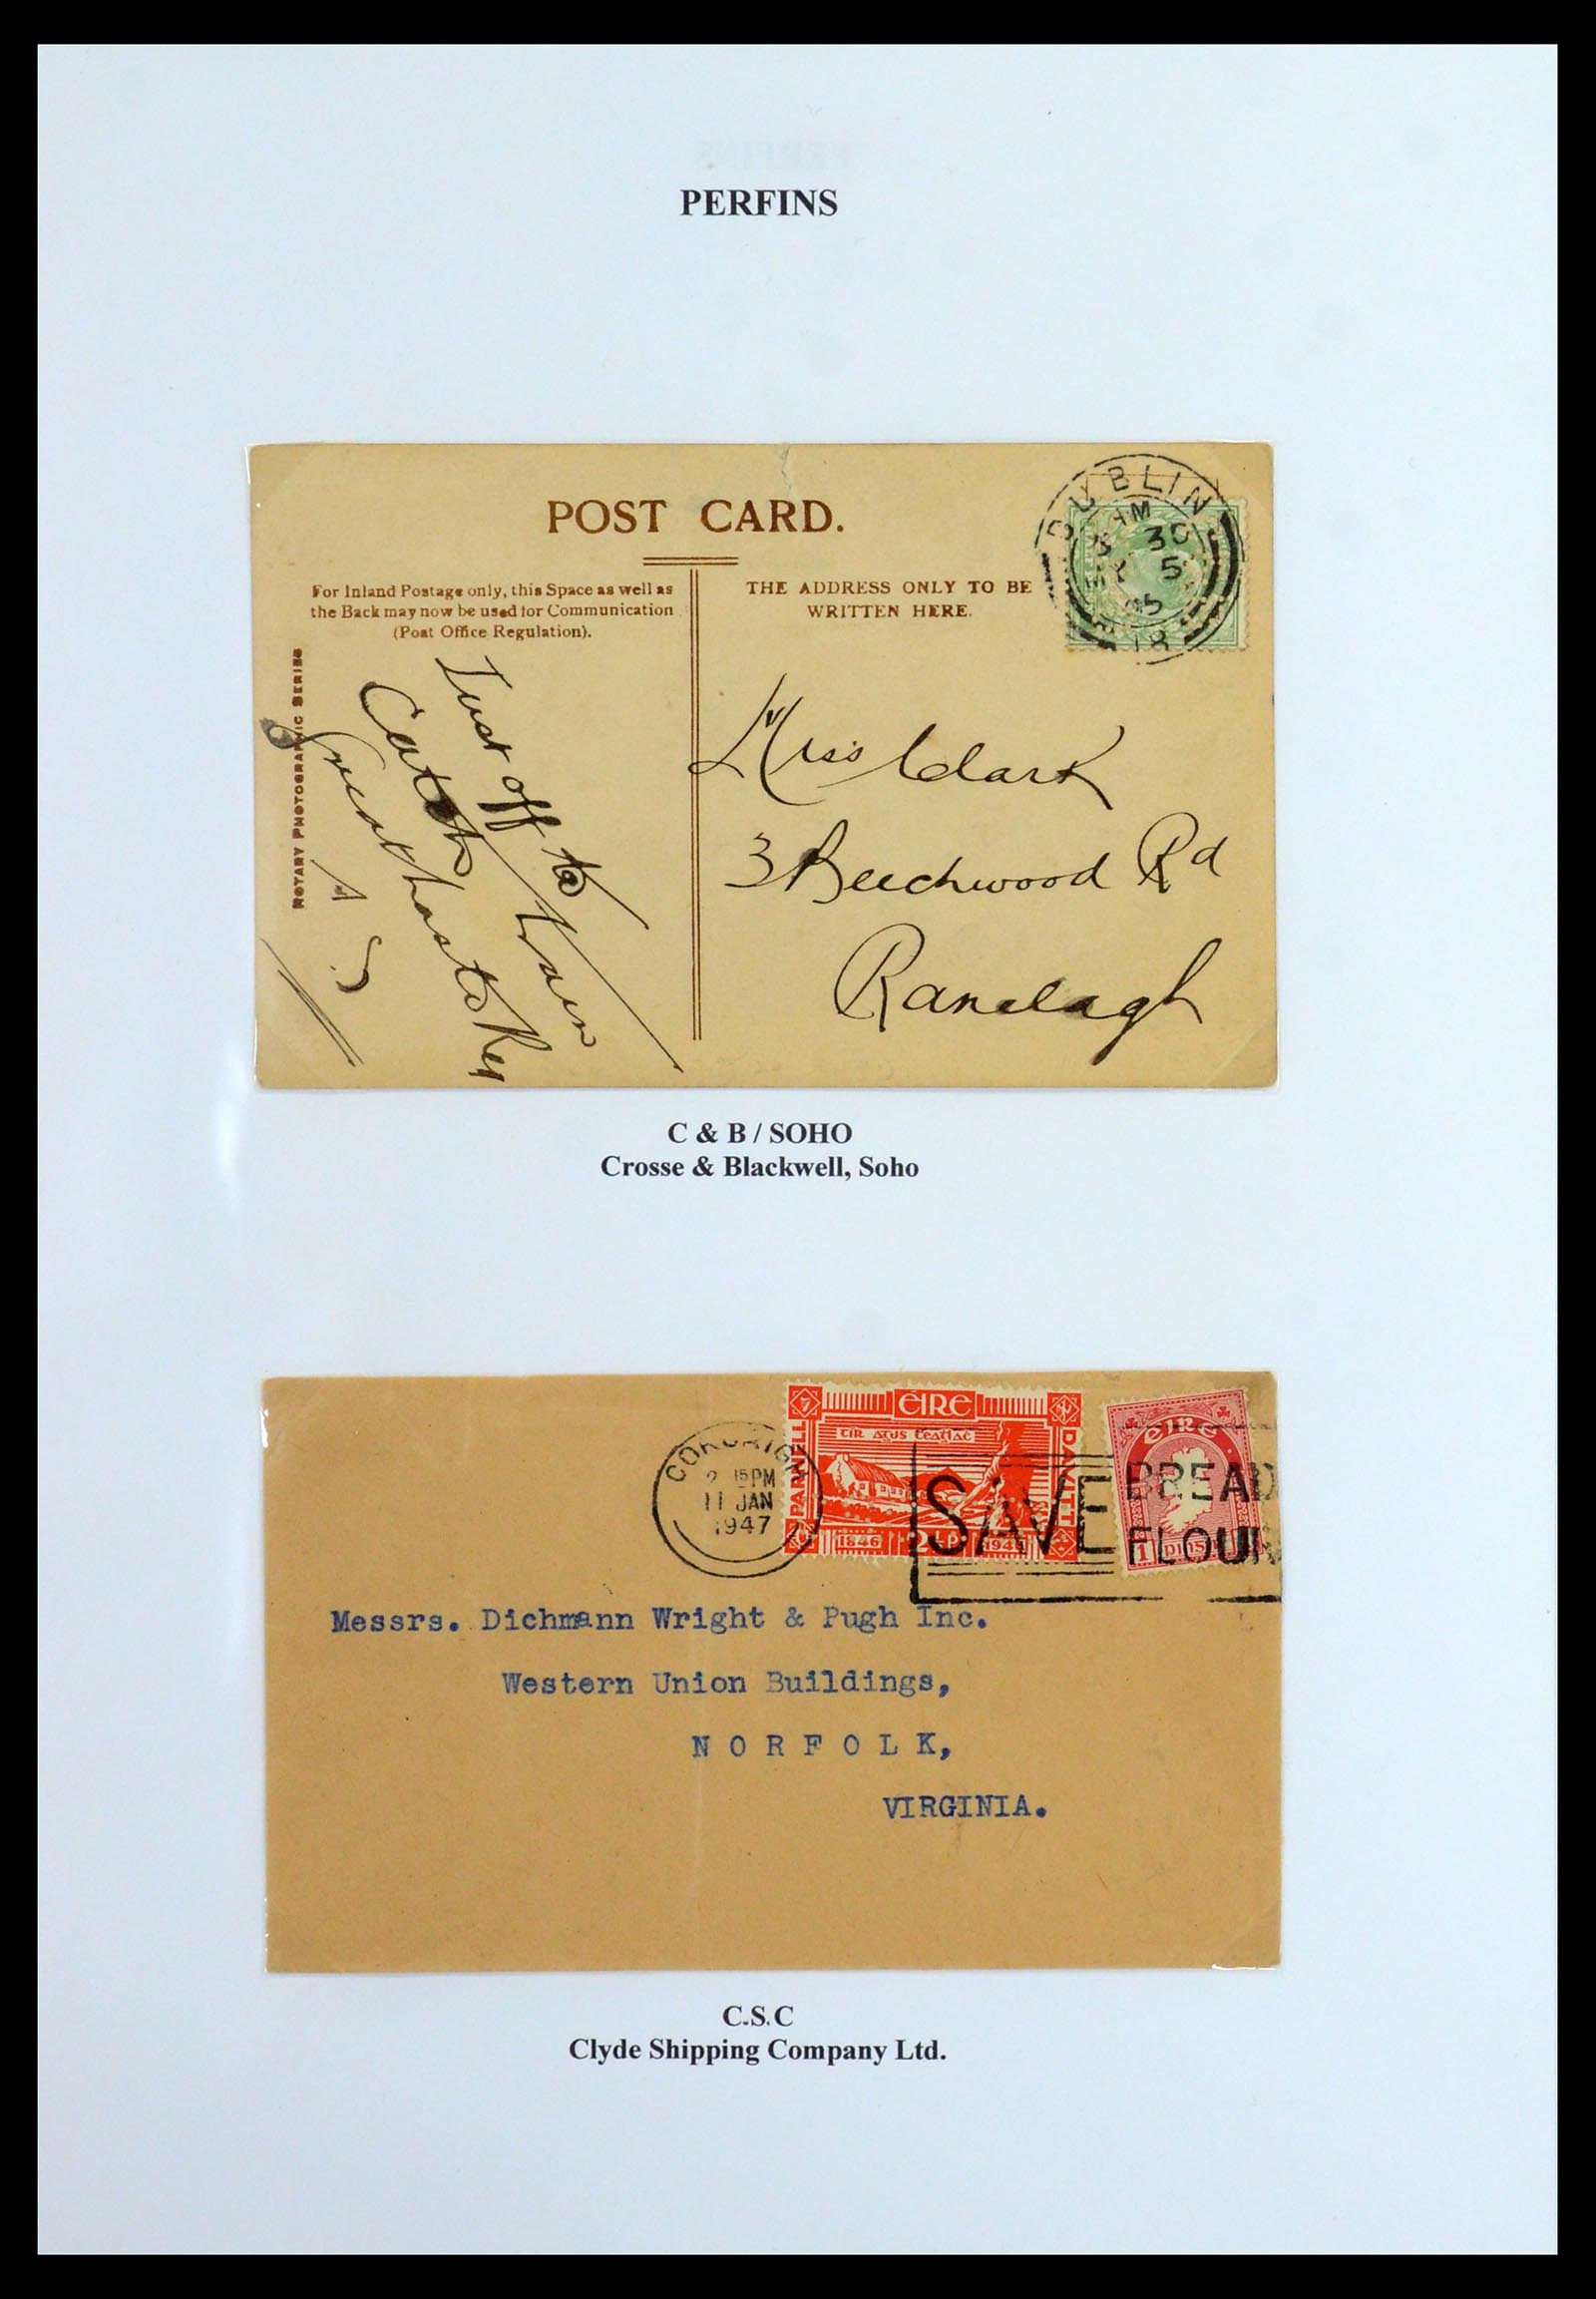 PERFINS
POST CARD.
For Inland Postage only, this Space as well as
the Back may now be used for Communication
(Post Office Regulation).
THE ADDRESS ONLY TO BE
WRITTEN HERE.
ROTARY PHOTOGRAPHIC SERIES
DUBLIN
30
MY 5
05
18
Just off to
Catch train
Great haste
Miss Clark
3 Beechwood Rd
Ranelagh
C & B / SOHO
Crosse & Blackwell, Soho
CORCAIGH
15PM
11 JAN
1947
ÉIRE
TÍR AGUS TEAGLAĊ
PARNELL
DAVITT
1846 2½p 1946
EIRE
1 PINSIN
SAVE
BREAD
FLOUR
Messrs. Dichmann Wright & Pugh Inc.
Western Union Buildings,
NORFOLK,
VIRGINIA.
C.S.C
Clyde Shipping Company Ltd.